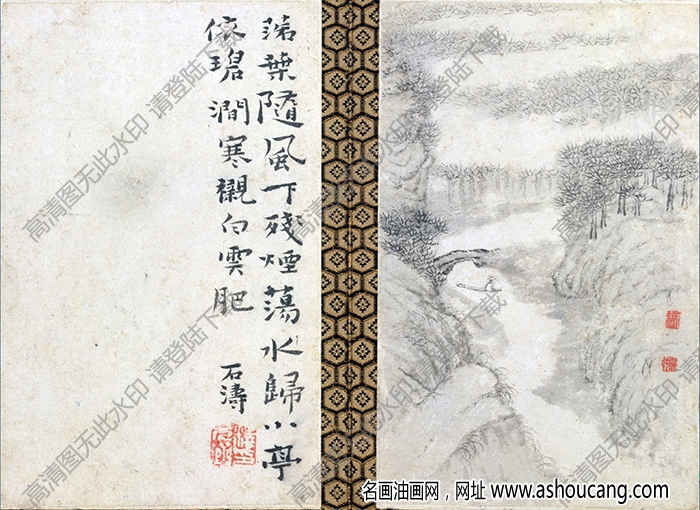 落葉隨風下殘煙蕩水歸小亭
依碧澗寒襯白雲肥
石濤
高清图无此水印 请登陆下载
高清图无此水印 请登陆下载
高清图无此水印 请登陆下载
高清图无此水印 请登陆下载
名画油画网，网址 www.ashoucang.com